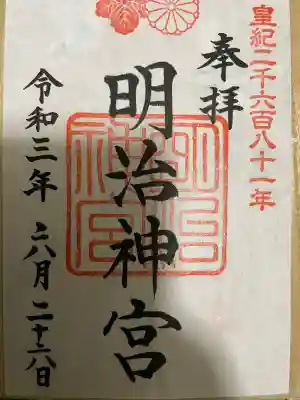 皇紀二千六百八十一年
奉拝
明治神宮
明治神宮
令和三年 六月二十六日